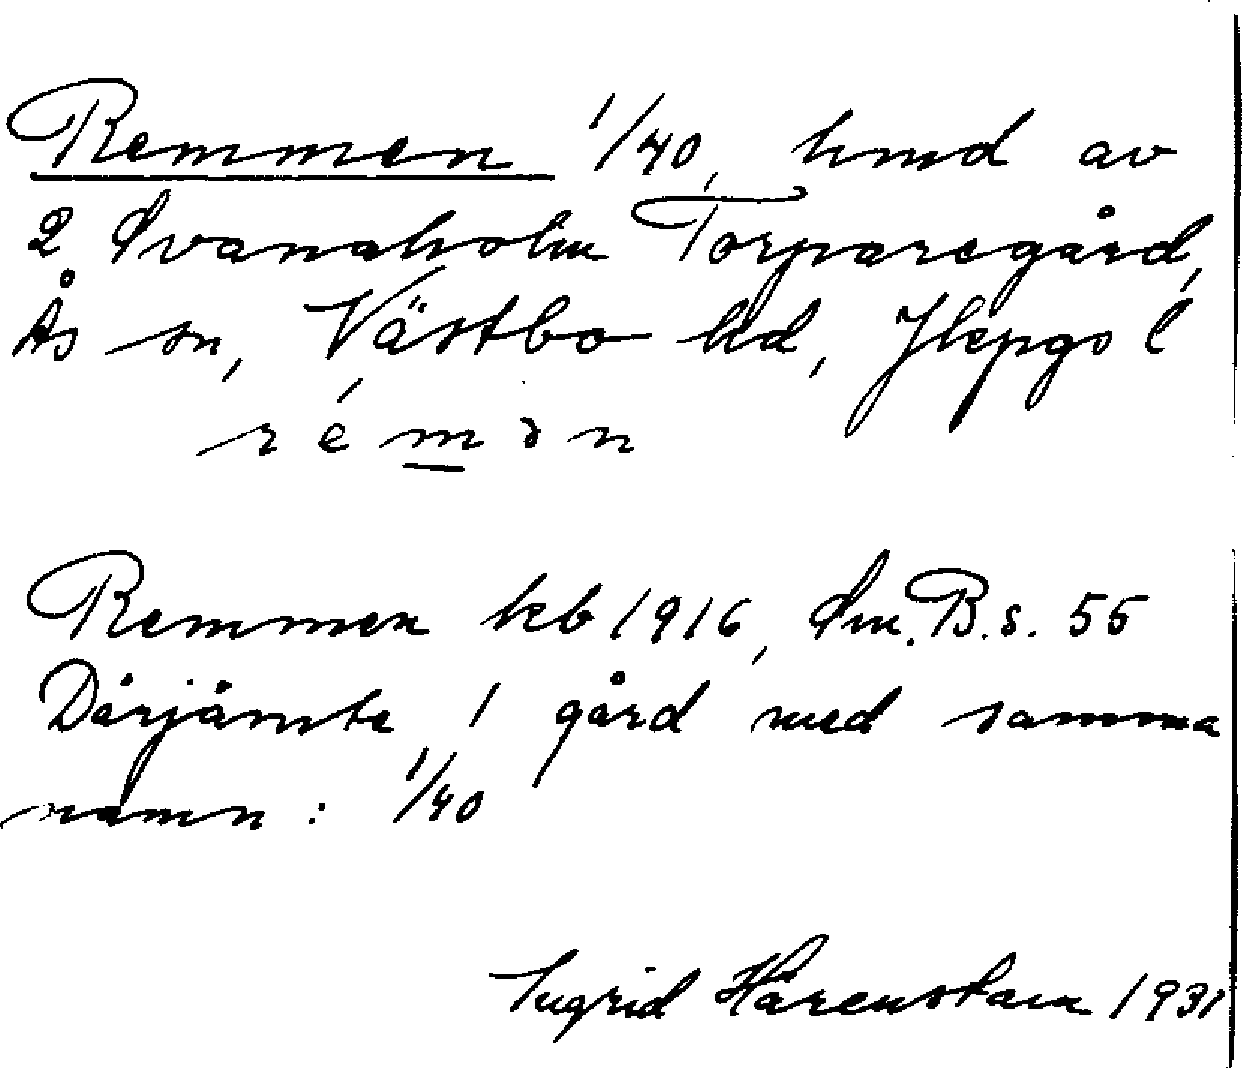 Remmen 1/40, hmd av
2 Svanaholm Torparegård,
Ås sn, Västbo hd, Jkpgs l
rémən
Remmen kb 1916, Sm. B. s. 55
Därjämte 1 gård med samma
namn : 1/40
Ingrid Härenstam 1931